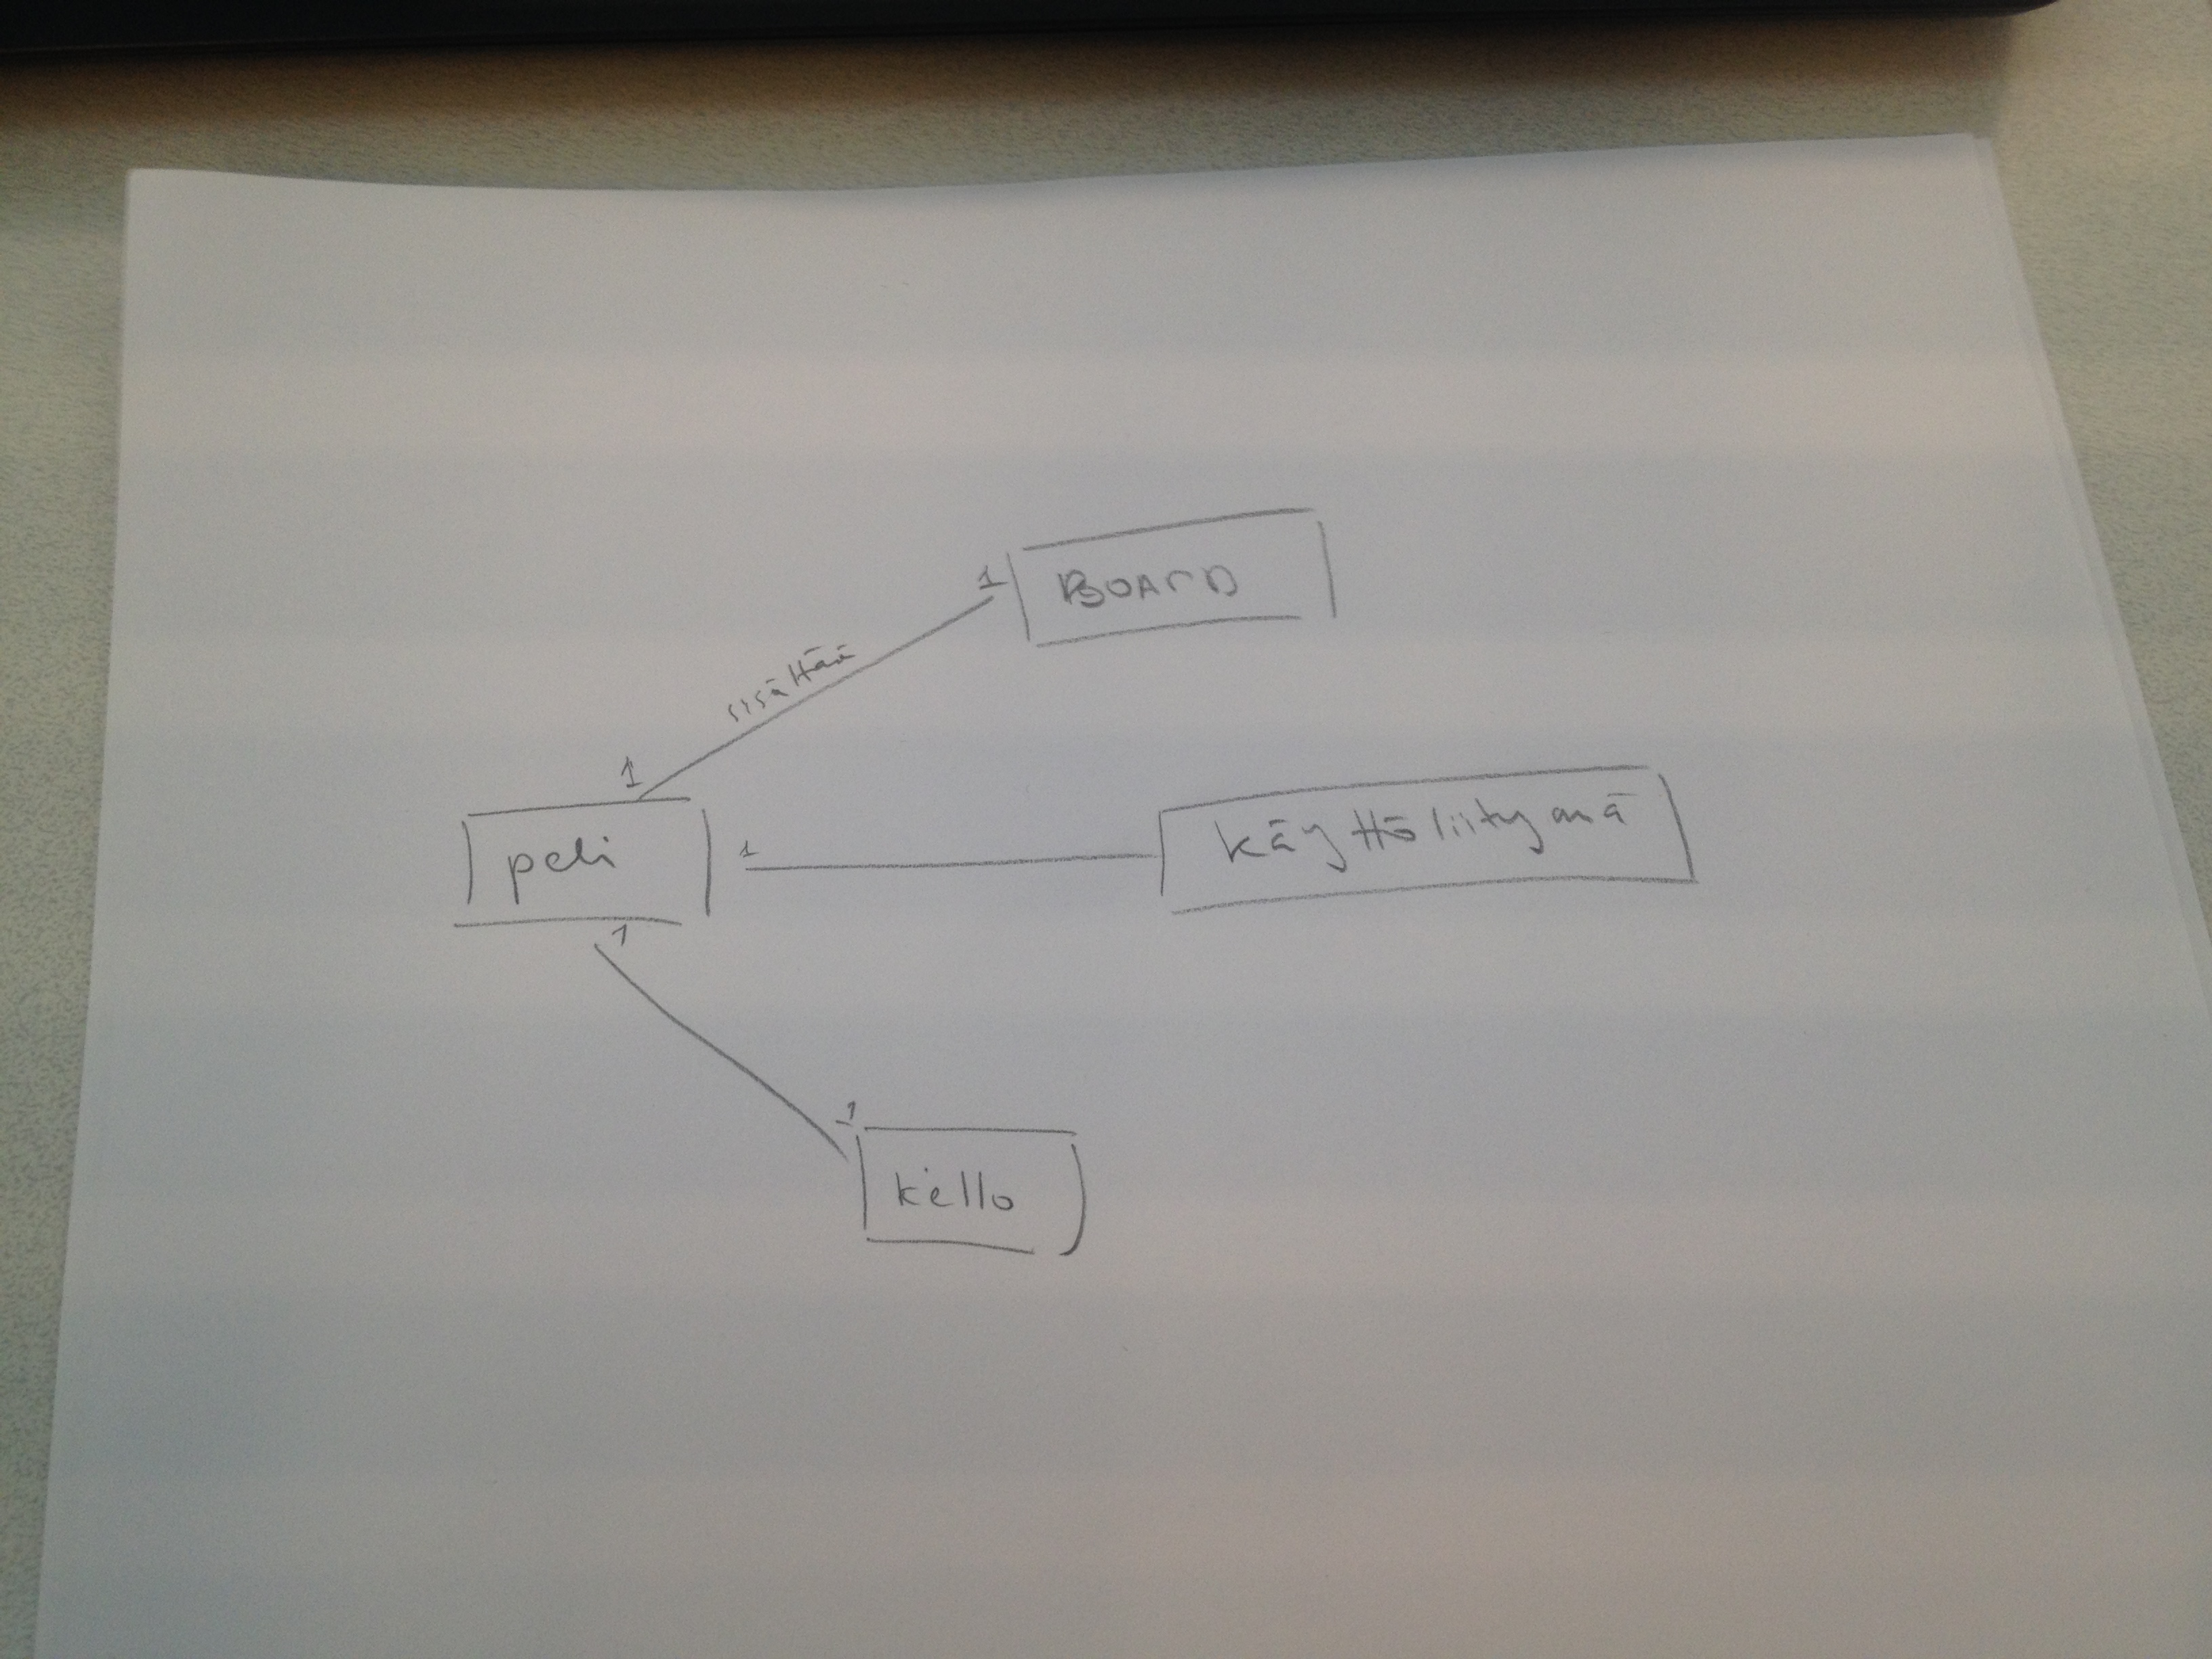 1
BOArD
sisältää
1
peli
1
käyttöliitymä
1
1
kello